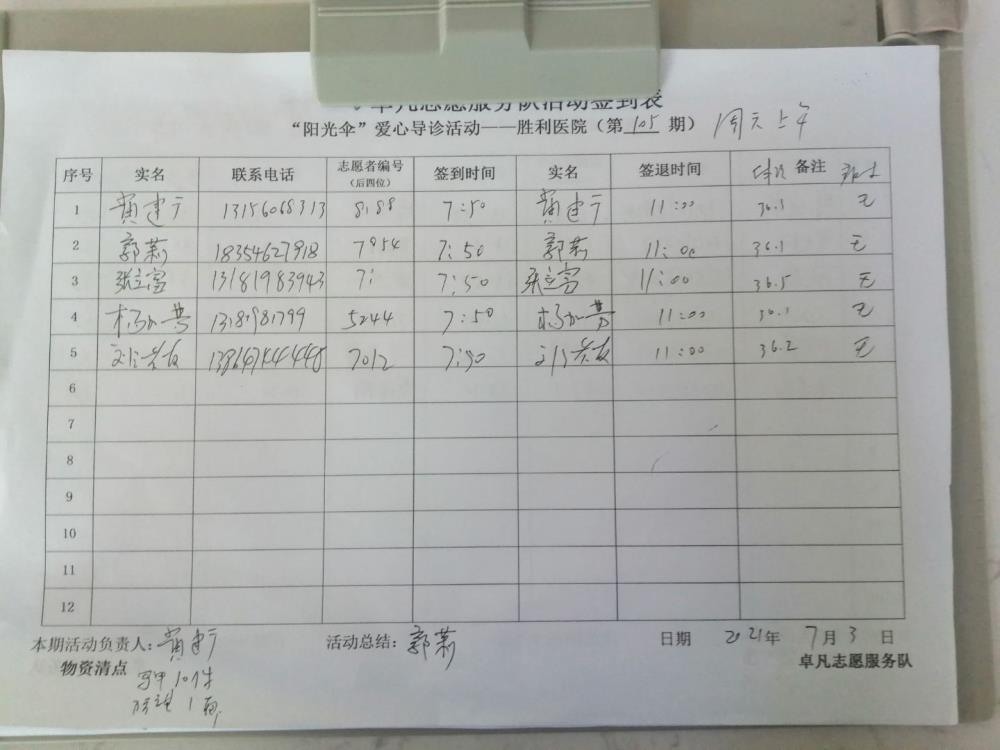 卓凡志愿服务队活动签到表
“阳光伞”爱心导诊活动——胜利医院（第 105 期） 周天上午
序号 实名 联系电话 志愿者编号（后四位） 签到时间 实名 签退时间 备注
1 黄建宁 13156068313 8188 7:50 黄建宁 11:00 36.1 无
2 郭莉 18354627918 7054 7:50 郭莉 11:00 36.1 无
3 张立富 13181983943 7:50 张立富 11:00 36.5 无
4 5244 7:50 11:00 无
5 7012 7:50 11:00 36.2 无
6
7
8
9
10
11
12
本期活动负责人：黄建宁 活动总结：郭莉 日期 2021年 7月 3 日
物资清点 卓凡志愿服务队
马甲10件